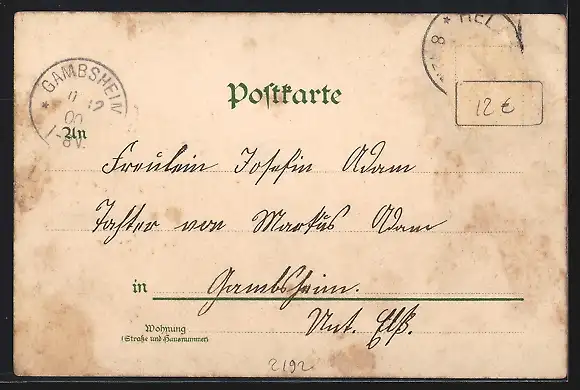 * HEL
8
* GAMBSHEIM
11 12
00
1-8V.
Postkarte
12 €
An
Freulein Josefin Adam
Tochter von Markus Adam
in Gambsheim.
Unt. Elß.
Wohnung
(Straße und Hausnummer)
2192